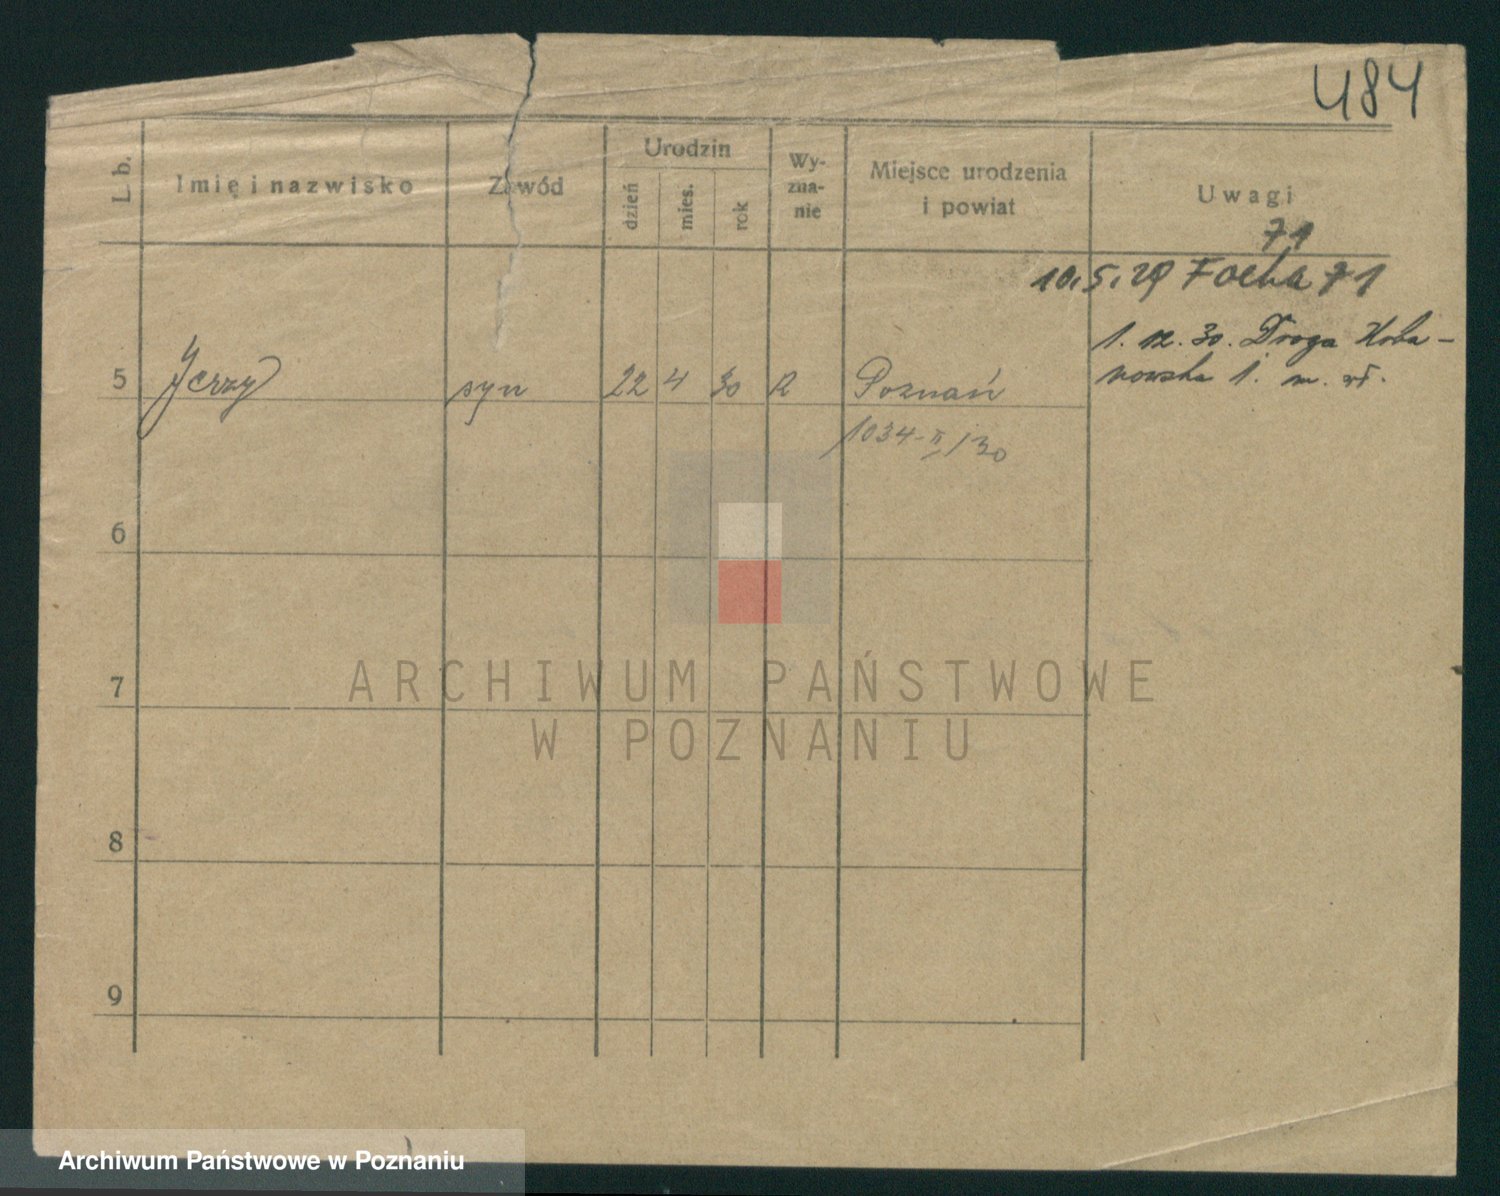 484
L. b.
Imię i nazwisko
Zawód
Urodzin
dzień
mies.
rok
Wy-
zna-
nie
Miejsce urodzenia
i powiat
Uwagi
71
10.5.29 Focha 71
1. 12. 30. Droga
1. m. wł.
5 Jerzy syn 22 4 30 R Poznań
1034-II/30
6
7
8
9
ARCHIWUM PAŃSTWOWE
W POZNANIU
Archiwum Państwowe w Poznaniu